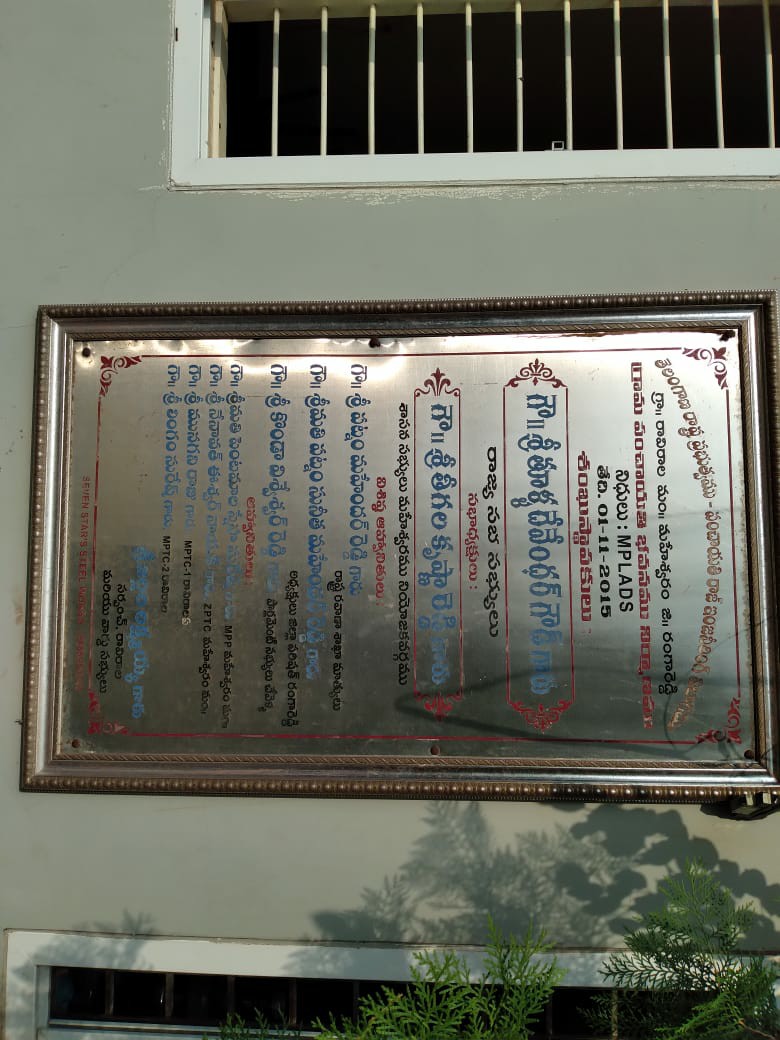 తెలంగాణ రాష్ట్ర ప్రభుత్వము - పంచాయతి రాజ్ ఇంజనీరింగ్
గ్రా॥ రావిరాల మం॥ మహేశ్వరం జి॥ రంగారెడ్డి
గ్రామ పంచాయతి భవనము నిర్మాణము
నిధులు : MPLADS
తేది. 01-11-2015
శంఖుస్థాపకులు :
గౌ॥ శ్రీ తూళ్ల దేవేందర్ గౌడ్ గారు
రాజ్య సభ సభ్యులు
సభాధ్యక్షులు :
గౌ॥ శ్రీ తీగల కృష్ణా రెడ్డి గారు
శాసన సభ్యులు మహేశ్వరము నియోజకవర్గము
విశిష్ఠ ఆహ్వానితులు
గౌ॥ శ్రీ పట్నం మహేందర్ రెడ్డి గారు
రాష్ట్ర రవాణా శాఖా మాత్యులు
గౌ॥ శ్రీమతి పట్నం సునీత మహేందర్ రెడ్డి గారు
అధ్యక్షులు జిల్లా పరిషత్ రంగారెడ్డి
గౌ॥ శ్రీ కొండా విశ్వేశ్వర్ రెడ్డి గారు పార్లమెంట్ సభ్యులు చేవెళ్ళ
ఆహ్వానితులు :
గౌ॥ శ్రీమతి పెంటమాల స్వప్న గారు MPP మహేశ్వరం
గౌ॥ శ్రీ నేనావత్ ఈశ్వర్ నాయక్ గారు ZPTC మహేశ్వరం మం॥
గౌ॥ శ్రీ మునగపి రాజు గారు MPTC-1 రావిరాల
గౌ॥ శ్రీ లింగం సురేష్ గారు MPTC-2 రావిరాల
గారు
సర్పంచ్. రావిరాల
మరియు వార్డు సభ్యులు
SEVEN STAR'S STEEL